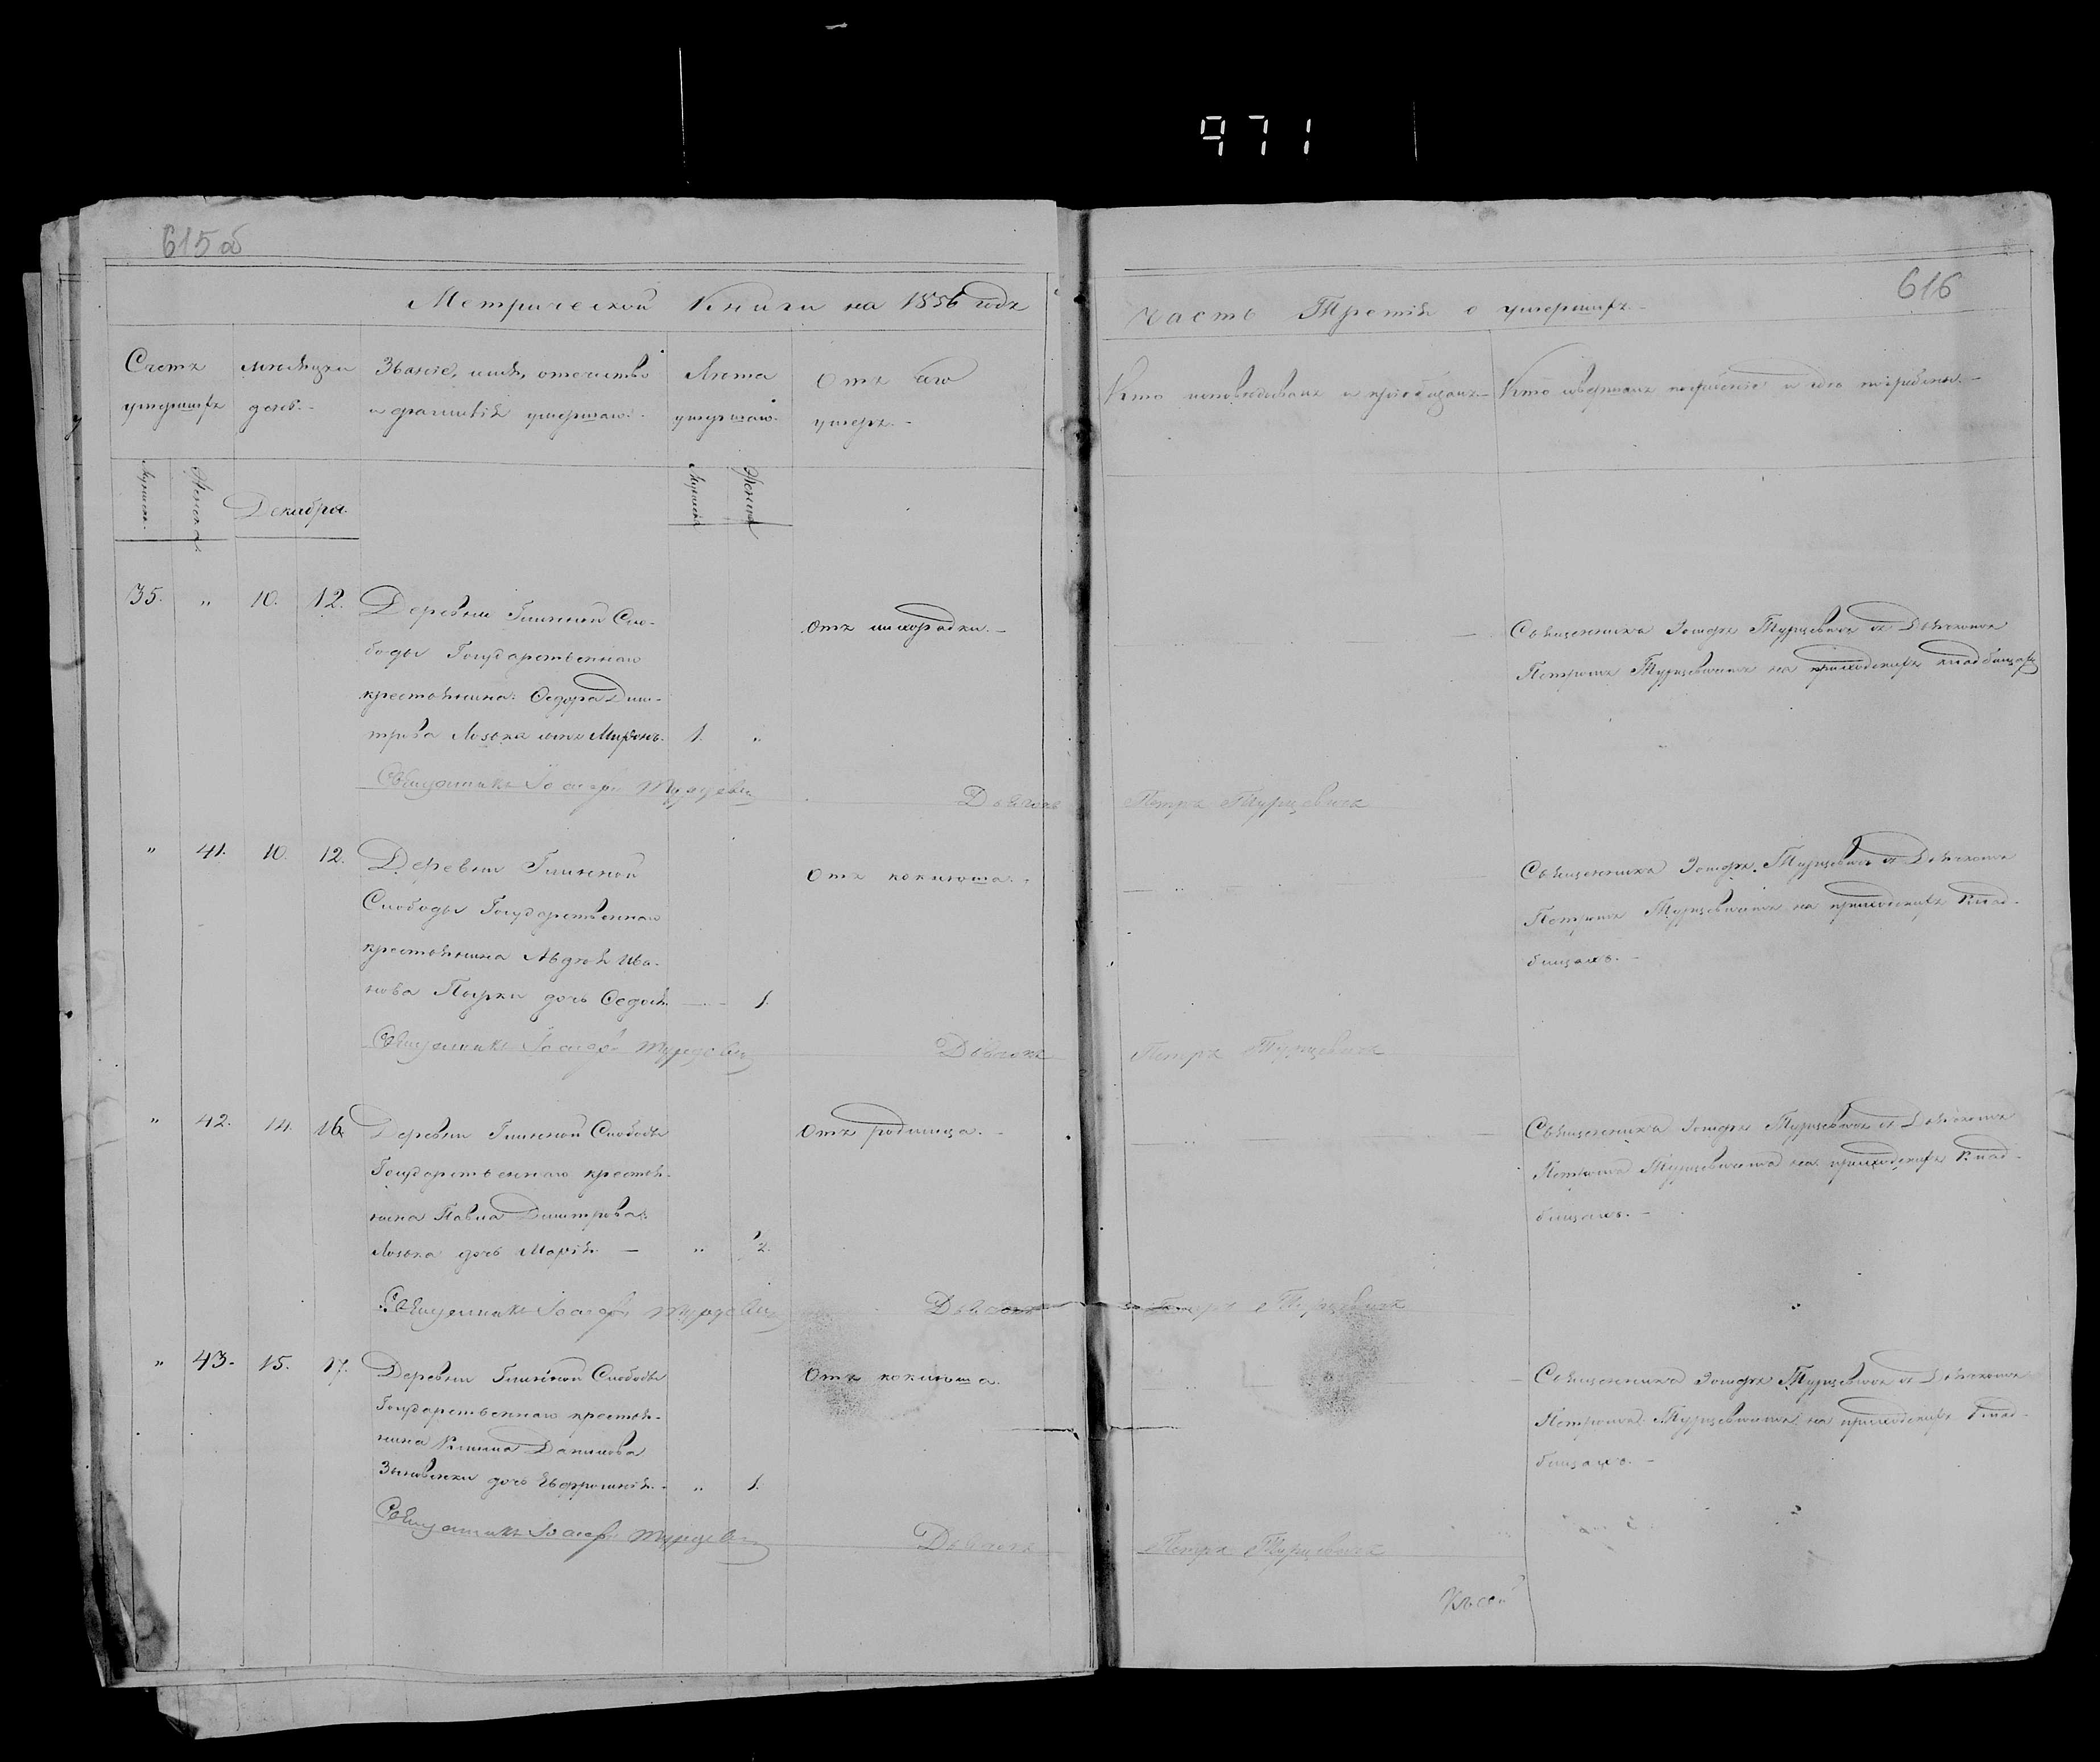 971
615 об
616
Метрической Книги на 1856 годъ
часть Третія о умершихъ.
Счетъ умершихъ
мѣсяцъ и день.
Званіе, имя, отечество и фамилія умершаго.
Лѣта умершаго.
Отъ чего умеръ.
Кто исповѣдывалъ и пріобщалъ.
Кто совершалъ погребеніе и гдѣ погребены.
Мужеска.
Женска
Декабрь.
Мужеска
Женска
35. " 10. 12.
Деревни Глинной Сло-
боды Государственнаго
крестьянина Ѳедора Дми-
трова Лозька сынъ Миронъ. 1. "
Отъ лихорадки.
Священникъ Іосифъ Турцевичъ съ Дьячкомъ
Петромъ Турцевичемъ на приходскихъ кладбищахъ
Священникъ Іосифъ Турцевичъ
Дьячокъ Петръ Турцевичъ
" 41. 10. 12.
Деревни Глинной
Слободы Государственнаго
крестьянина Авдѣя Ива-
нова Пырки дочь Ѳедося. 1.
Отъ коклюша.
Священникъ Іосифъ Турцевичъ съ Дьячкомъ
Петромъ Турцевичемъ на приходскихъ клад-
бищахъ.
Священникъ Іосифъ Турцевичъ
Дьячокъ Петръ Турцевичъ
" 42. 14. 16.
Деревни Глинной Слободы
Государственнаго крестья-
нина Павла Димитрова
Лозька дочь Марія. " 1/2.
Отъ родимца.
Священникъ Іосифъ Турцевичъ съ Дьячкомъ
Петромъ Турцевичемъ на приходскихъ клад-
бищахъ.
Священникъ Іосифъ Турцевичъ
Дьячокъ Петръ Турцевичъ
" 43. 15. 17.
Деревни Глинной Слободы
Государственнаго крестья-
нина Климa Данилова
Зыновички дочь Евфросинія. " 1.
Отъ коклюша.
Священникъ Іосифъ Турцевичъ съ Дьячкомъ
Петромъ Турцевичемъ на приходскихъ клад-
бищахъ.
Священникъ Іосифъ Турцевичъ
Дьячокъ Петръ Турцевичъ